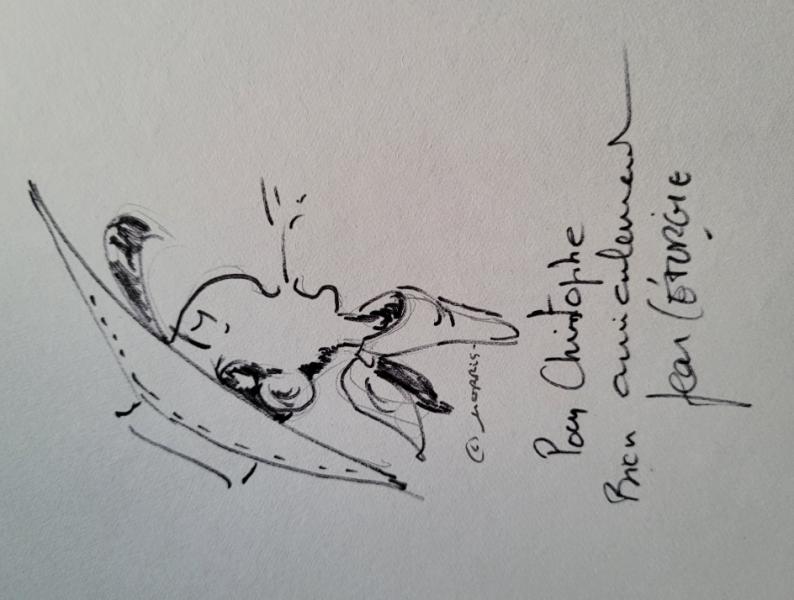 © MORRIS-
Pour Christophe
Bien amicalement
Jean LÉTURGIE